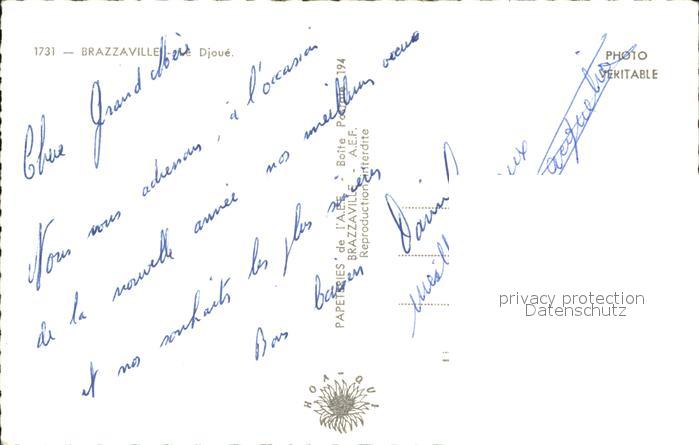 1731 — BRAZZAVILLE - Le Djoué.
PHOTO
VÉRITABLE
Chère Grand Mère
Nous vous adressons, à l'occasion
de la nouvelle année nos meilleurs vœux
et nos souhaits les plus sincères
Bons baisers
PAPETERIES de l'A.E.F. - Boîte Postale 194
BRAZZAVILLE - A.E.F.
Reproduction interdite
privacy protection
Datenschutz